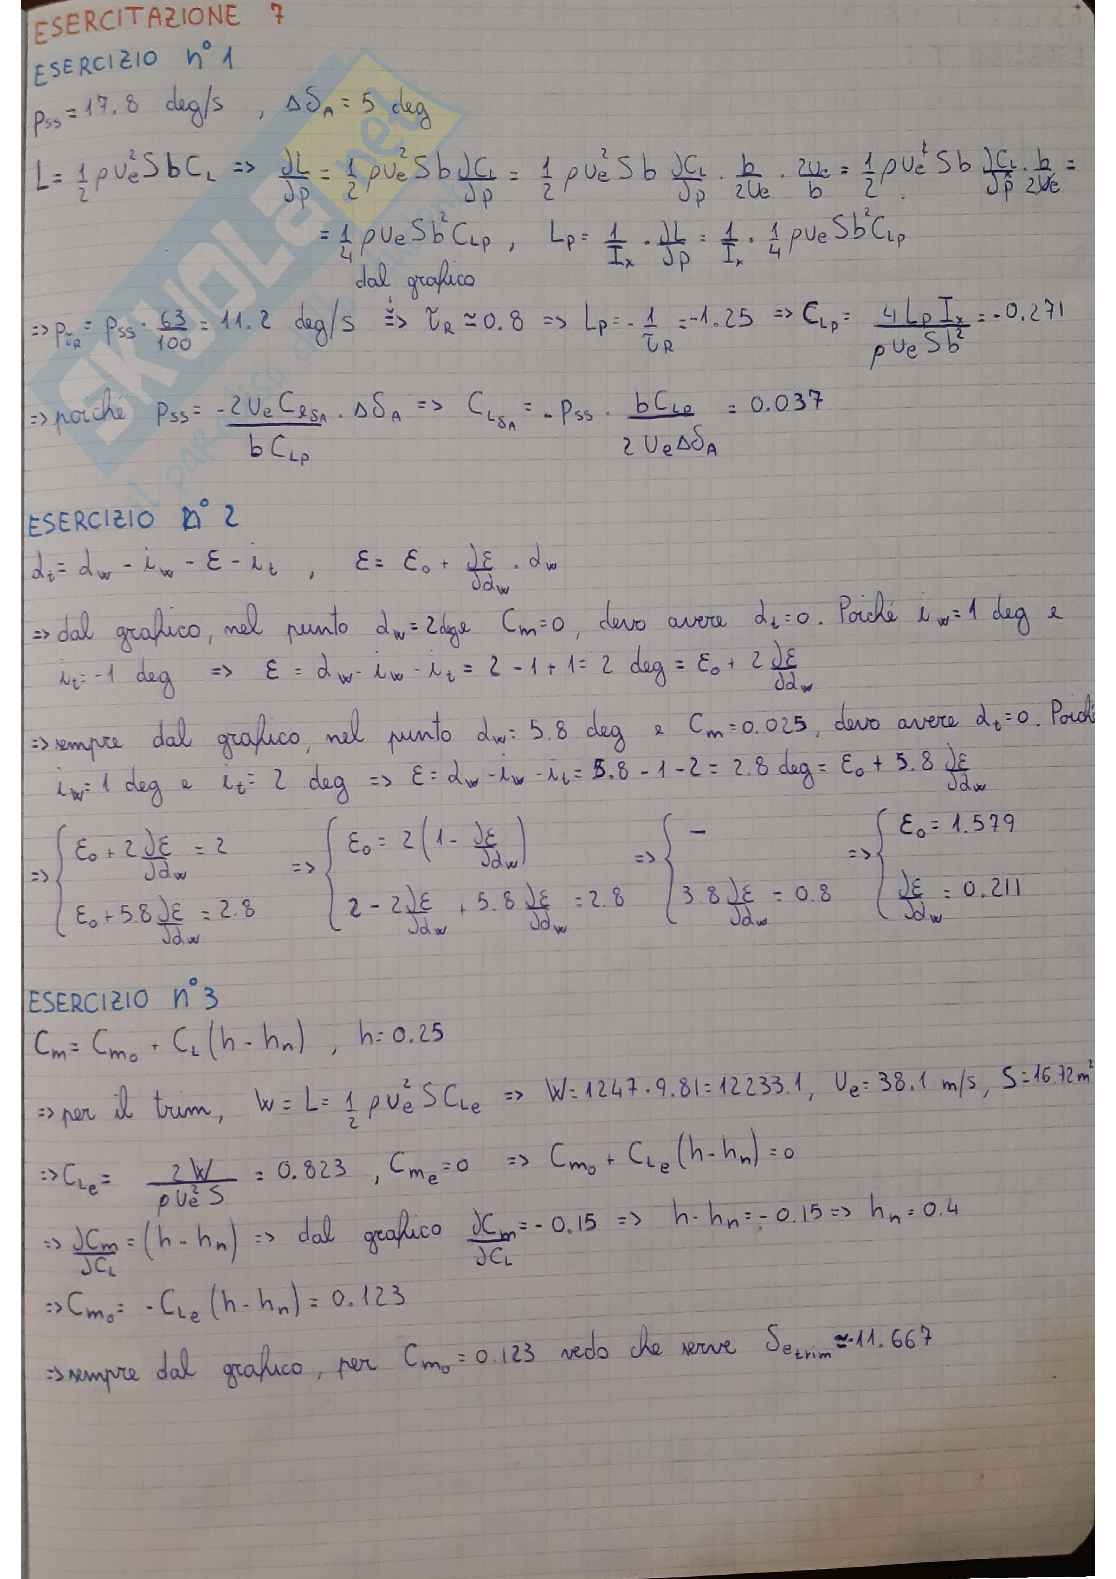 ESERCITAZIONE 7
ESERCIZIO n° 1
p_ss = 17.8 deg/s , Δδ_A = 5 deg
L = 1/2 ρU_e² S b C_L => ∂L/∂p = 1/2 ρU_e² S b ∂C_L/∂p = 1/2 ρU_e² S b ∂C_L/∂p · b/2U_e · 2U_e/b = 1/2 ρU_e² S b ∂C_L/∂p̂ · b/2U_e =
= 1/4 ρU_e S b² C_Lp , L_p = 1/I_x · ∂L/∂p = 1/I_x · 1/4 ρU_e S b² C_Lp
dal grafico
=> p_τR = p_ss · 63/100 = 11.2 deg/s => τ_R ≃ 0.8 => L_p = -1/τ_R = -1.25 => C_Lp = 4 L_p I_x / ρU_e S b² = -0.271
=> poiché p_ss = -2U_e C_ℓδA / b C_Lp · Δδ_A => C_LδA = -p_ss · b C_Lp / 2U_e Δδ_A = 0.037
ESERCIZIO n° 2
α_t = α_w - i_w - ε - i_t , ε = ε_0 + ∂ε/∂α_w · α_w
=> dal grafico, nel punto α_w = 2 deg e C_m = 0, devo avere α_t = 0. Poiché i_w = 1 deg e
i_t = -1 deg => ε = α_w - i_w - i_t = 2 - 1 + 1 = 2 deg = ε_0 + 2 ∂ε/∂α_w
=> sempre dal grafico, nel punto α_w = 5.8 deg e C_m = 0.025, devo avere α_t = 0. Poiché
i_w = 1 deg e i_t = 2 deg => ε = α_w - i_w - i_t = 5.8 - 1 - 2 = 2.8 deg = ε_0 + 5.8 ∂ε/∂α_w
=> { ε_0 + 2 ∂ε/∂α_w = 2 => { ε_0 = 2(1 - ∂ε/∂α_w) => { - => { ε_0 = 1.579
ε_0 + 5.8 ∂ε/∂α_w = 2.8 2 - 2 ∂ε/∂α_w + 5.8 ∂ε/∂α_w = 2.8 3.8 ∂ε/∂α_w = 0.8 ∂ε/∂α_w = 0.211
ESERCIZIO n° 3
C_m = C_m0 + C_L (h - h_n) , h = 0.25
=> per il trim, W = L = 1/2 ρU_e² S C_Le => W = 1247 · 9.81 = 12233.1, U_e = 38.1 m/s, S = 16.72 m²
=> C_Le = 2W / ρU_e² S = 0.823 , C_me = 0 => C_m0 + C_Le (h - h_n) = 0
=> ∂C_m/∂C_L = (h - h_n) => dal grafico ∂C_m/∂C_L = -0.15 => h - h_n = -0.15 => h_n = 0.4
=> C_m0 = -C_Le (h - h_n) = 0.123
=> sempre dal grafico, per C_m0 = 0.123 vedo che serve δ_e trim ≃ -11.667